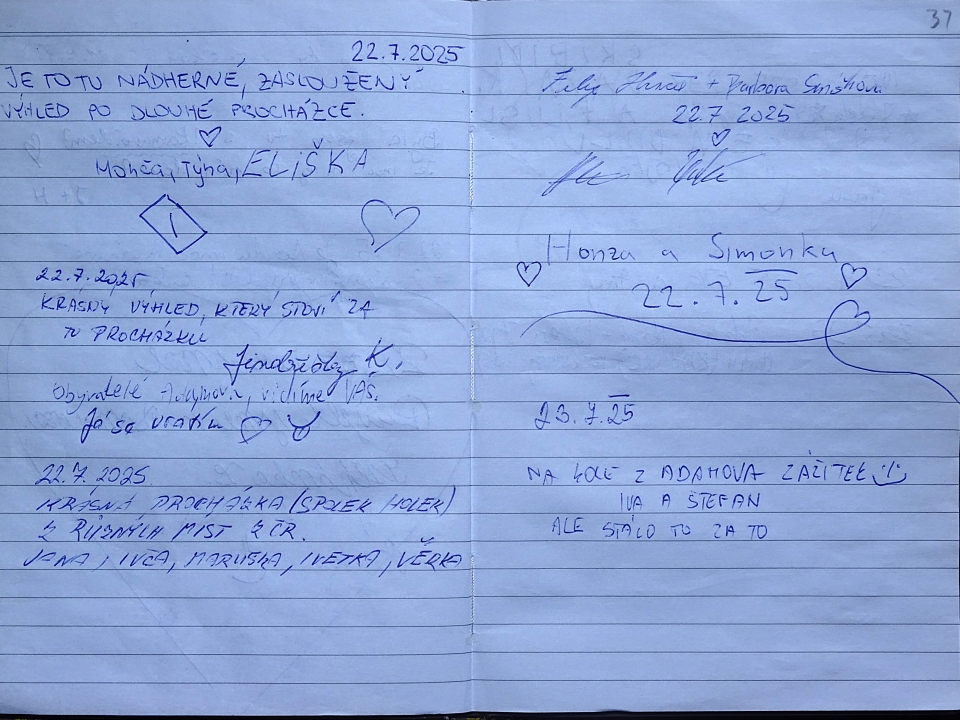 22.7.2025
JE TO TU NÁDHERNÉ, ZASLOUŽENÝ
VÝHLED PO DLOUHÉ PROCHÁZCE.
Monča, Týna, ELIŠKA
22.7.2025
KRÁSNÝ VÝHLED, KTERÝ STOJÍ ZA
TU PROCHÁZKU
K.
Obyvatelé Adamova, vidíme VÁS.
Já se vrátím
22.7.2025
KRÁSNÁ PROCHÁZKA (SPOLEK HOLEK)
Z RŮZNÝCH MÍST Z ČR.
JANA, IVČA, MARUŠKA, IVETKA, VĚRKA
37
Filip + Barbora
22.7 2025
Honza a Simonka
22.7.25
23.7.25
NA KOLE Z ADAMOVA ZÁŽITEK
IVA A ŠTEFAN
ALE STÁLO TO ZA TO